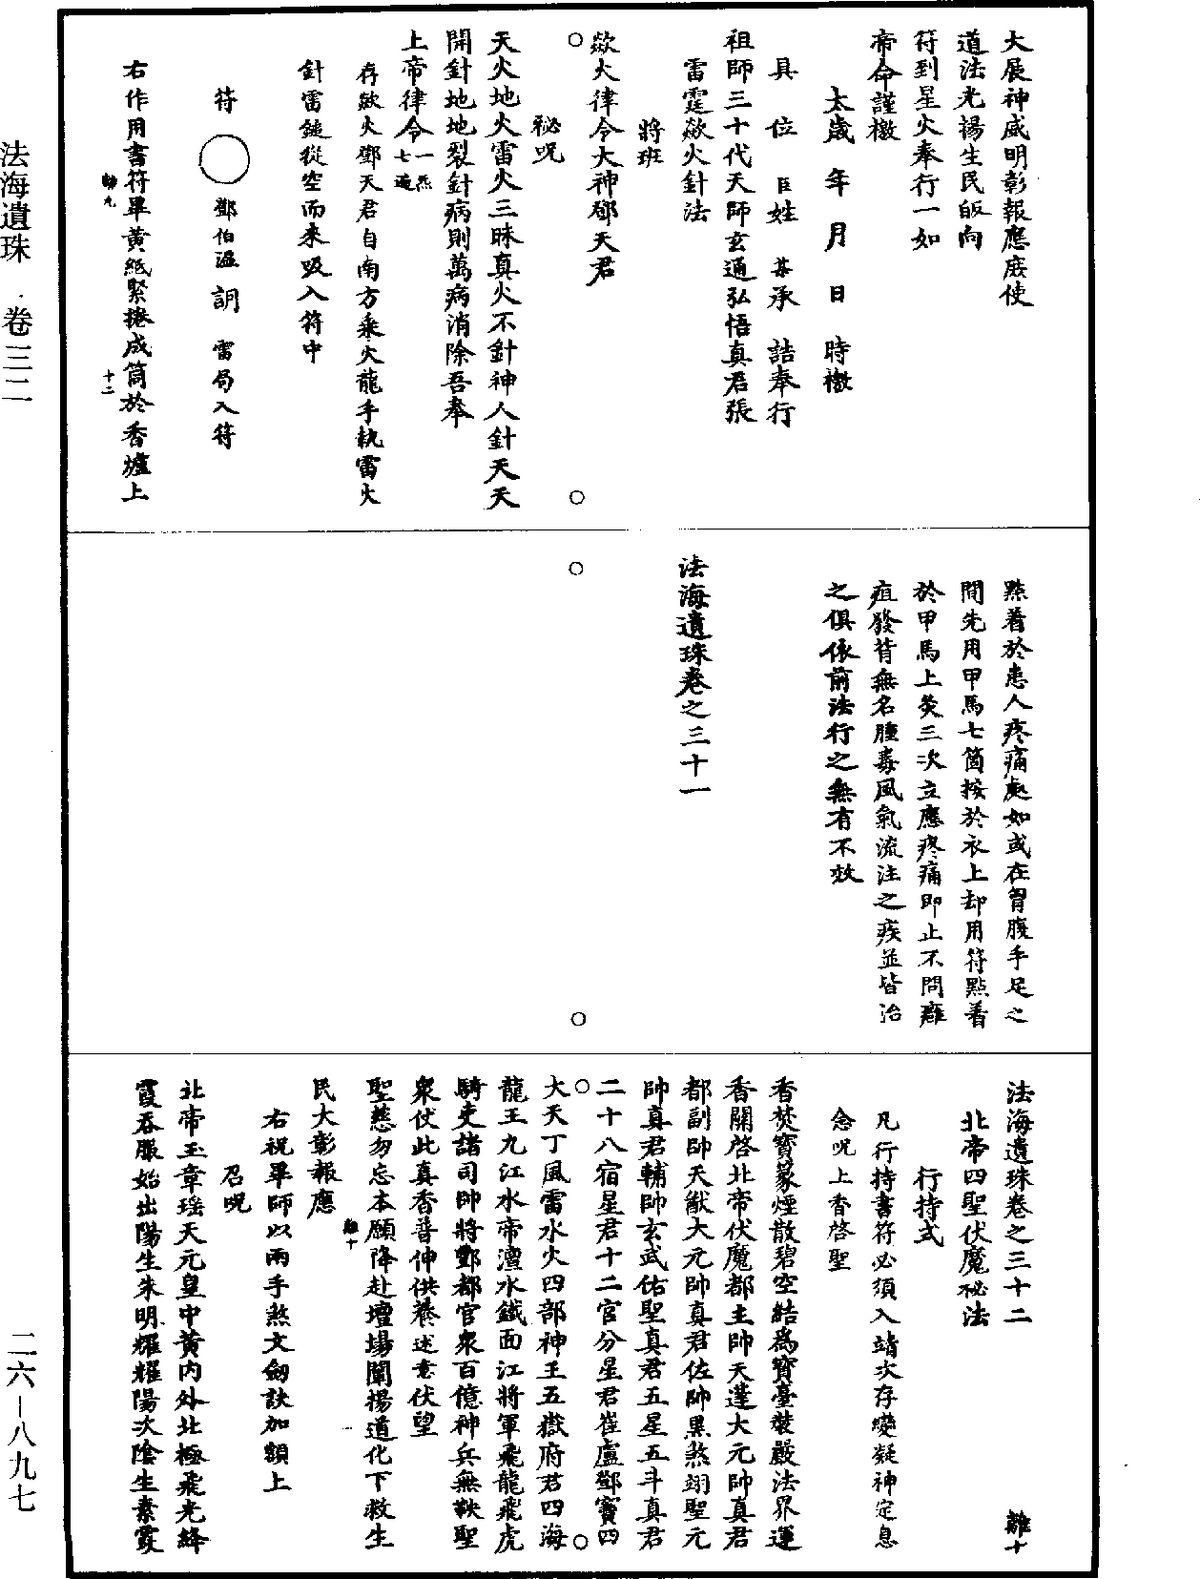 法海遺珠 卷三二
二六—八九七
大展神威明彰報應庶使
道法光揚生民皈向
符到星火奉行一如
帝命謹檄
太歲 年 月 日 時檄
具 位 臣姓 某承 誥奉行
祖師三十代天師玄通弘悟真君張
雷霆歘火針法
將班
歘火律令大神鄧天君
秘呪
天火地火雷火三昧真火不針神人針天天
開針地地裂針病則萬病消除吾奉
上帝律令一炁七遍
存歘火鄧天君自南方乘火龍手執雷火
針雷鎚從空而來吸入符中
符 鄧伯溫 詗 雷局入符
右作用書符畢黃紙緊捲成筒於香爐上
難九
十二
㸃着於患人疼痛處如或在胷腹手足之
間先用甲馬七箇按於衣上却用符點着
於甲馬上灸三次立應疼痛即止不問癰
疽發背無名腫毒風氣流注之疾並皆治
之俱依前法行之無有不效
法海遺珠卷之三十一
法海遺珠卷之三十二
難十
北帝四聖伏魔祕法
行持式
凡行持書符必須入靖次存變凝神定息
念呪上香啓聖
香焚寶篆煙散碧空結為寶臺裝嚴法界運
香關啓北帝伏魔都主帥天蓬大元帥真君
都副帥天猷大元帥真君佐帥黑煞翊聖元
帥真君輔帥玄武佑聖真君五星五斗真君
二十八宿星君十二宮分星君崔盧鄧竇四
大天丁風雷水火四部神王五嶽府君四海
龍王九江水帝澶水鐵面江將軍飛龍飛虎
騎吏諸司帥將酆都官衆百億神兵無鞅聖
衆仗此真香普伸供養述意伏望
聖慈勿忘本願降赴壇場闡揚道化下救生
民大彰報應
難十
右祝畢師以兩手煞文劒訣加額上
召呪
北帝玉章瑶天元皇中黃內外北極飛光絳
霞吞服始出陽生朱明耀耀陽次陰生素霞